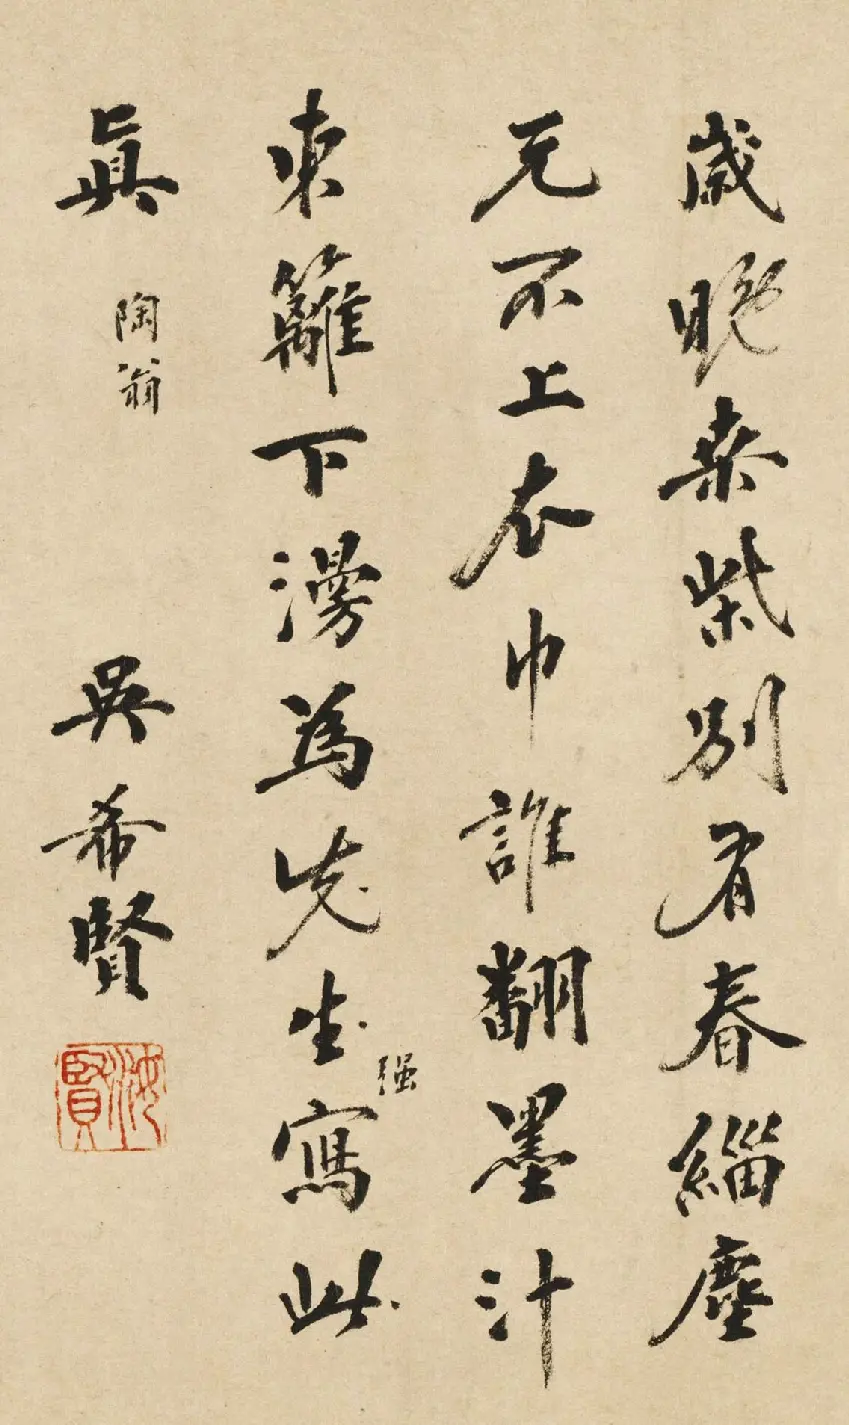 歲晚桒柴別有春緇塵
元不上衣巾誰翻墨汁
東籬下漫為先生强寫此
眞 陶翁 吳希賢
汝賢